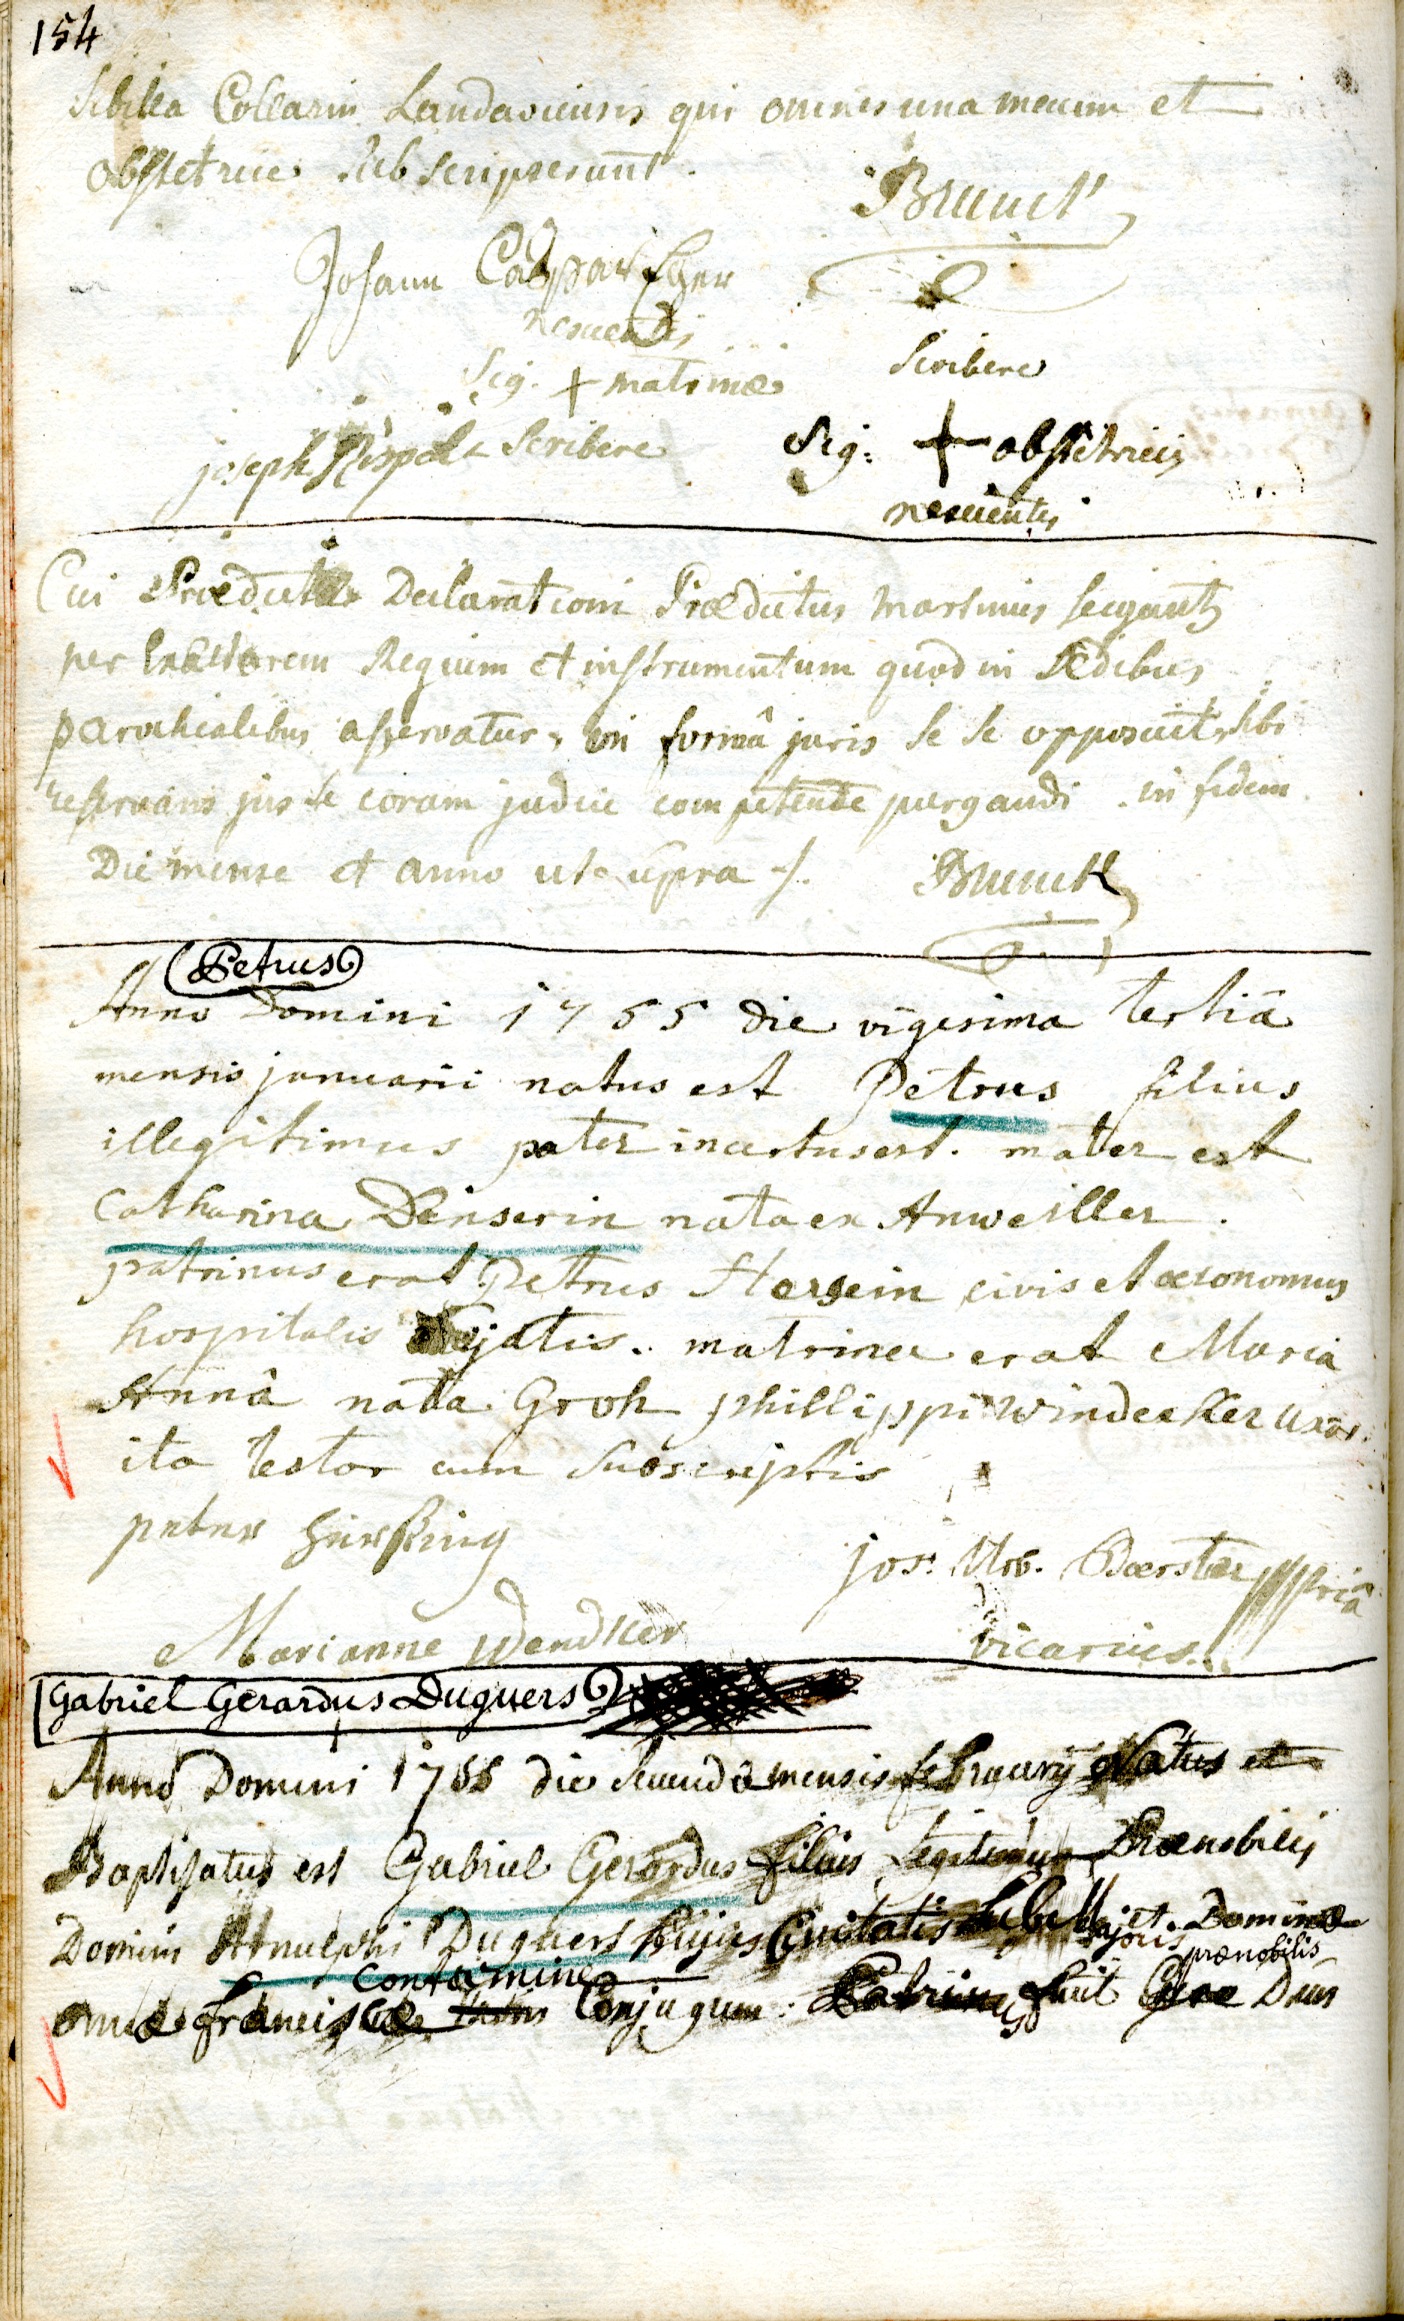 154
Sibilla Collarin Landaviensis qui omnes una mecum et
obstetrice subscripserunt.
Brunck
Johann Caspar
nescientis
Sig. + matrinæ
scribere
joseph scribere
Sig: + obstetricis
nescientis
Cui Prædictæ Declarationi Prædictus martinus
per Regium et instrumentum quod in Ædibus
parochialibus asservatur, in formâ juris se se opposuit, sibi
reservans jus se coram judice competente purgandi. in fidem
Die mense et anno ut supra ⁒.
Brunck
Petrus
Anno Domini 1755 die vigesima tertiâ
mensis januarii natus est Petrus filius
illegitimus pater incertus est. mater est
Catharina Dënserin nata ex Anweiller.
patrinus erat Petrus Hersein civis et œconomus
hospitalis ejatis. matrina erat Maria
Annâ nata Groh phillippi windecker uxor.
ita testor cum subscriptis
peter
jos: Urb. Boerster pppriâ
Marianne Wendker
vicarius.
Gabriel Gerardus Duquers
Anno Domini 1755 die secundâ mensis februarij Natus et
Baptisatus est Gabriel Gerardus filius Legitimus Prænobilis
Domini Arnulphi Duquers hujus Civitatis et Dominæ
Contarmine prænobilis
franciscæ Conjugum. Patrinus fuit Dnus